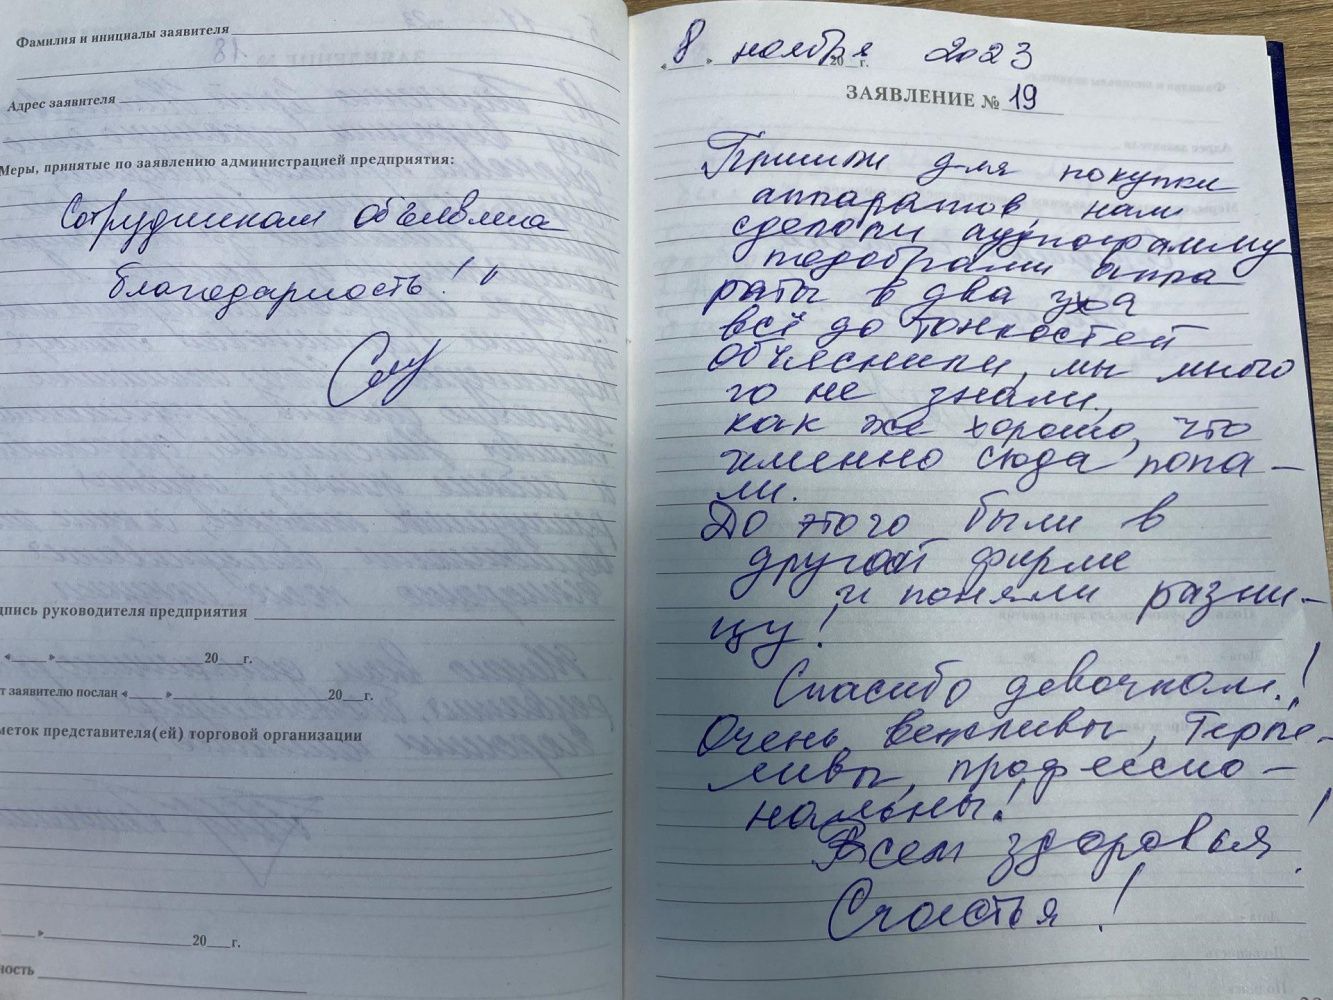 Фамилия и инициалы заявителя
Адрес заявителя
Меры, принятые по заявлению администрацией предприятия:
Сотрудникам объявлена
благодарность!"
дпись руководителя предприятия
« » 20 г.
т заявителю послан « » 20 г.
меток представителя(ей) торговой организации
» 20 г.
ность
« 8 » ноября 20 г. 2023
ЗАЯВЛЕНИЕ № 19
Пришли для покупки
аппаратов, нам
сделали аудиограмму
подобрали аппа
раты в два уха
всё до тонкостей
объяснили, мы много
го не знали,
как же хорошо, что
именно сюда попа-
ли.
До этого были в
другой фирме
и поняли разни-
цу!
Спасибо девочкам!
Очень вежливы, терпе-
ливы, професссио-
нальны!
Всем здоровья!
Счастья!